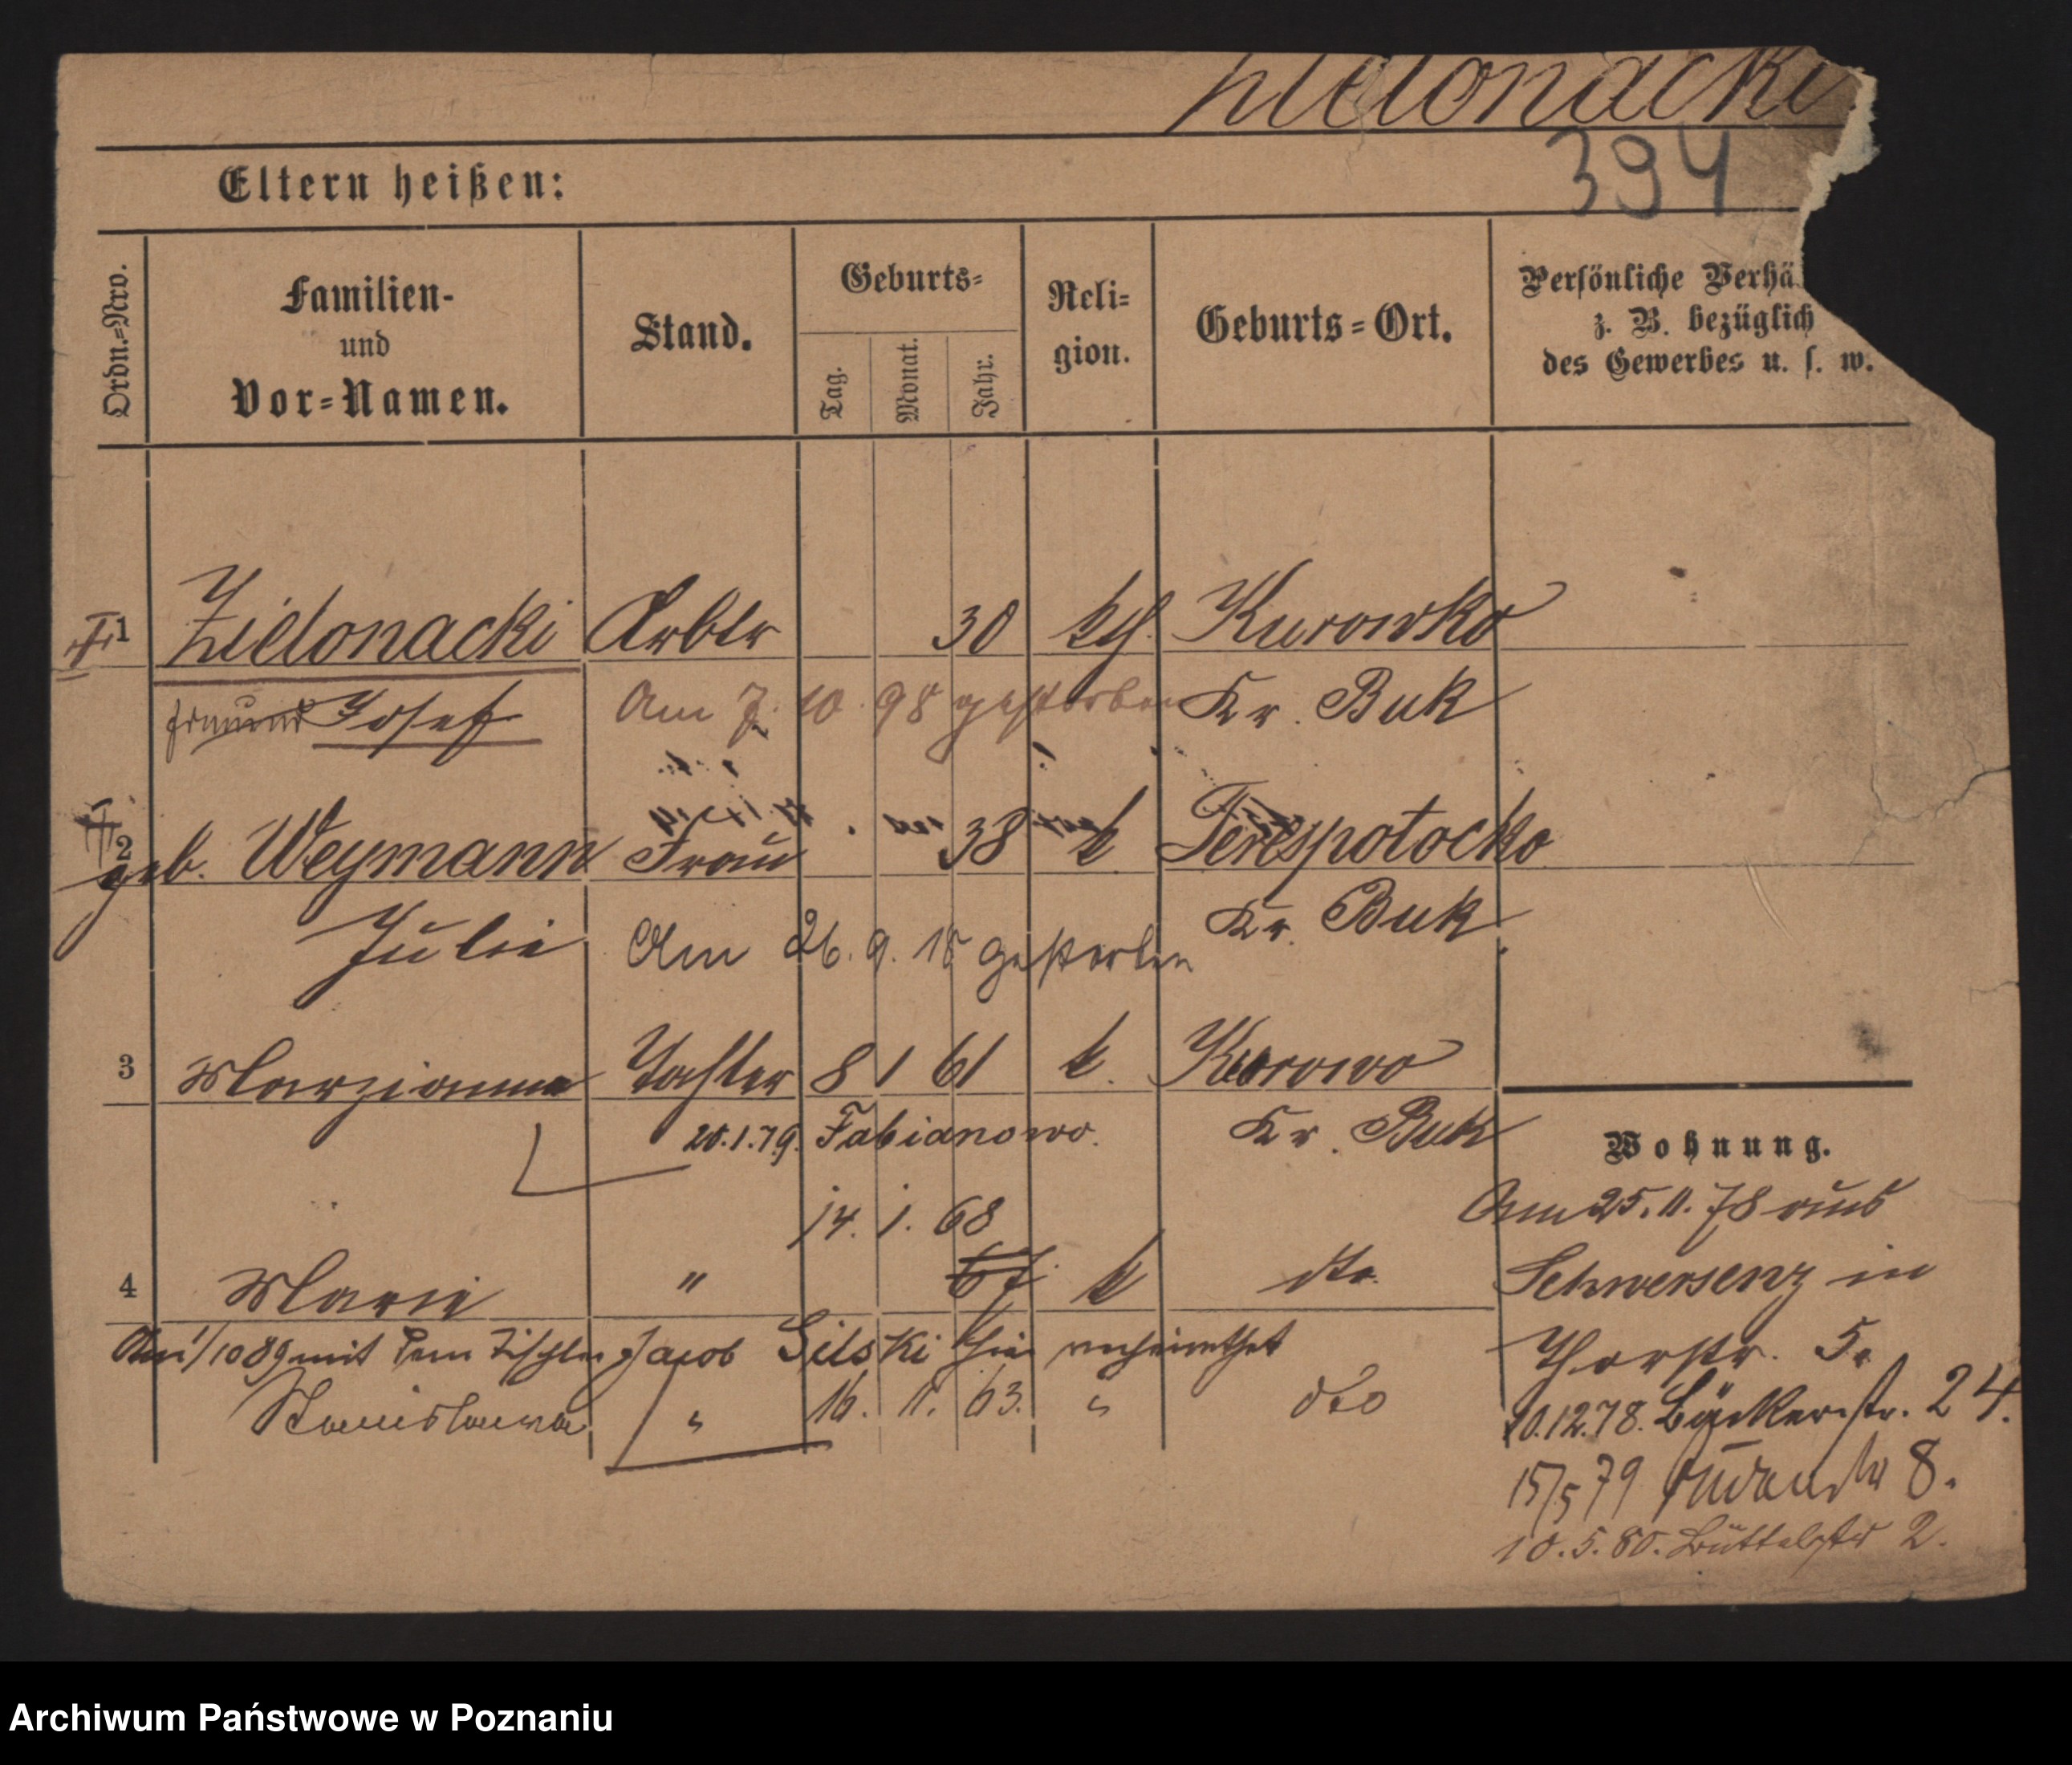 Zielonacki
394
Eltern heißen:
Ordn.=Nro.
Familien-
und
Vor=Namen.
Stand.
Geburts=
Tag.
Monat.
Jahr.
Reli=
gion.
Geburts=Ort.
Persönliche Verhä
z. B. bezüglich
des Gewerbes u. s. w.
1 Zielonacki Arbtr 30 kth. Kurowko
Josef Am 7. 10. 98 gestorben Kr. Buk
2 geb. Weymann Frau 38 k Terespotocko
Julie Am 26. 9. 18 gestorben Kr. Buk
3 Marzianna Tochter 8 1 61 k. Kurowo
20.1.79. Fabianowo. Kr. Buk
14. 1. 68
4 Marie " 67 k dto.
Am 1/10 89 mit dem Tischler Jacob Gilski hier verheirathet
Stanislawa " 16. 11. 63. " dto
Wohnung.
Am 25. 11. 78 aus
Schwersenz in
Thorstr. 5.
10.12.78. Bäckerstr. 24.
15/5 79 Judenstr 8.
10. 5. 80. Büttelstr 2.
Archiwum Państwowe w Poznaniu